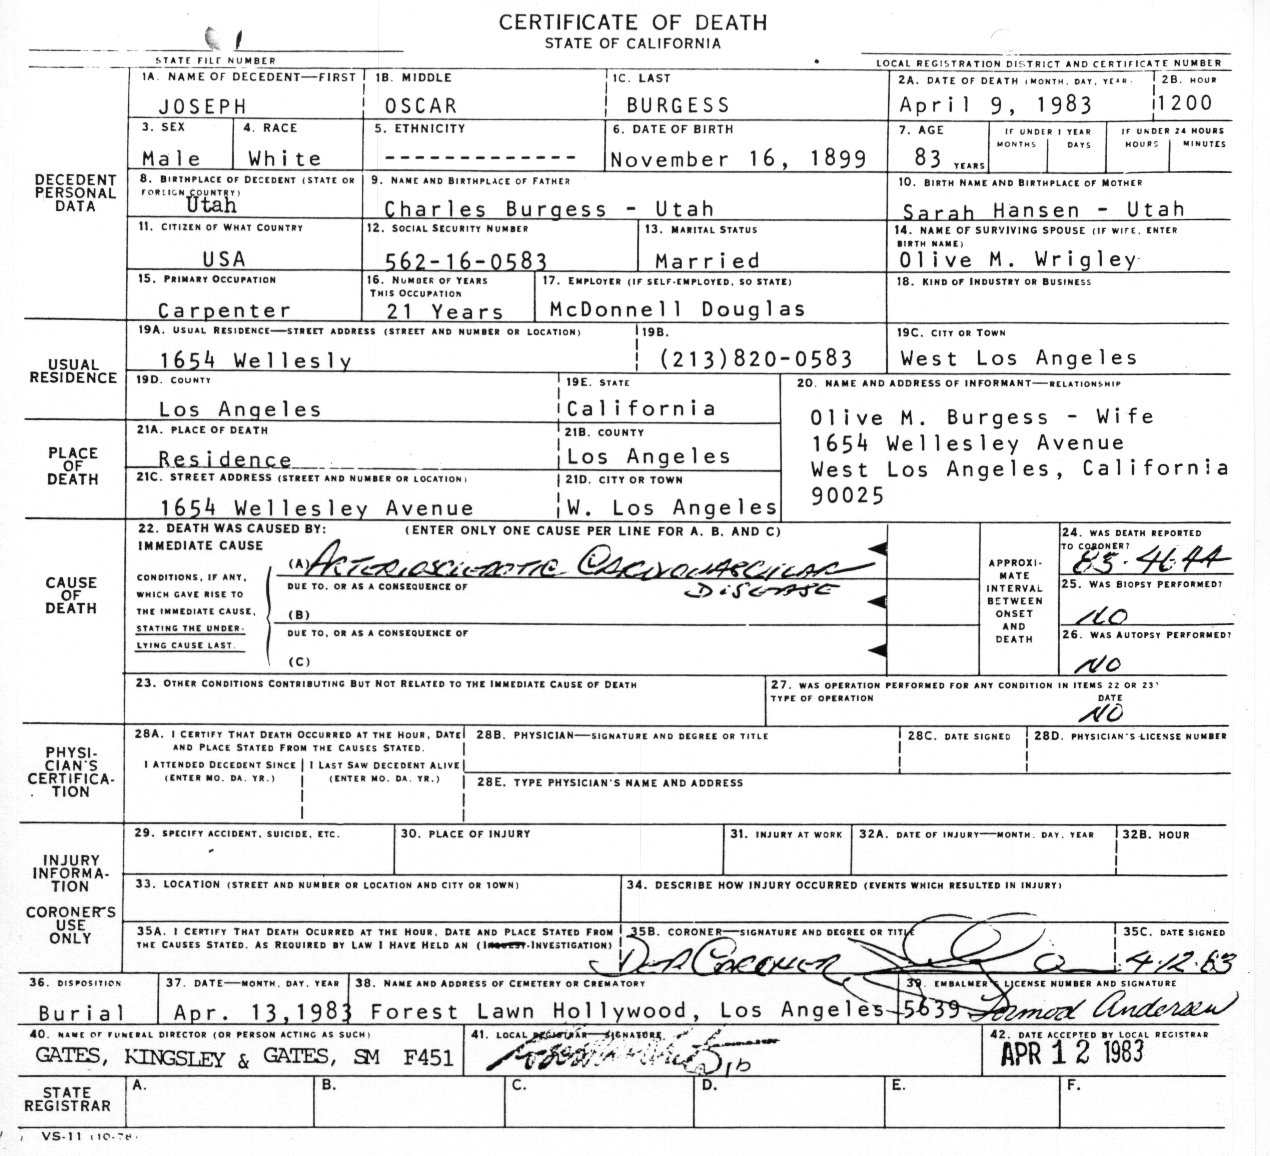 CERTIFICATE OF DEATH
STATE OF CALIFORNIA
STATE FILE NUMBER
LOCAL REGISTRATION DISTRICT AND CERTIFICATE NUMBER
DECEDENT PERSONAL DATA
1A. NAME OF DECEDENT—FIRST 1B. MIDDLE 1C. LAST 2A. DATE OF DEATH (MONTH, DAY, YEAR) 2B. HOUR
JOSEPH OSCAR BURGESS April 9, 1983 1200
3. SEX 4. RACE 5. ETHNICITY 6. DATE OF BIRTH 7. AGE IF UNDER 1 YEAR IF UNDER 24 HOURS
MONTHS DAYS HOURS MINUTES
Male White ------------- November 16, 1899 83 YEARS
8. BIRTHPLACE OF DECEDENT (STATE OR FOREIGN COUNTRY) 9. NAME AND BIRTHPLACE OF FATHER 10. BIRTH NAME AND BIRTHPLACE OF MOTHER
Utah Charles Burgess - Utah Sarah Hansen - Utah
11. CITIZEN OF WHAT COUNTRY 12. SOCIAL SECURITY NUMBER 13. MARITAL STATUS 14. NAME OF SURVIVING SPOUSE (IF WIFE, ENTER BIRTH NAME)
USA 562-16-0583 Married Olive M. Wrigley
15. PRIMARY OCCUPATION 16. NUMBER OF YEARS THIS OCCUPATION 17. EMPLOYER (IF SELF-EMPLOYED, SO STATE) 18. KIND OF INDUSTRY OR BUSINESS
Carpenter 21 Years McDonnell Douglas
USUAL RESIDENCE
19A. USUAL RESIDENCE—STREET ADDRESS (STREET AND NUMBER OR LOCATION) 19B. 19C. CITY OR TOWN
1654 Wellesly (213)820-0583 West Los Angeles
19D. COUNTY 19E. STATE 20. NAME AND ADDRESS OF INFORMANT—RELATIONSHIP
Los Angeles California
Olive M. Burgess - Wife
1654 Wellesley Avenue
West Los Angeles, California
90025
PLACE OF DEATH
21A. PLACE OF DEATH 21B. COUNTY
Residence Los Angeles
21C. STREET ADDRESS (STREET AND NUMBER OR LOCATION) 21D. CITY OR TOWN
1654 Wellesley Avenue W. Los Angeles
CAUSE OF DEATH
22. DEATH WAS CAUSED BY: (ENTER ONLY ONE CAUSE PER LINE FOR A, B, AND C)
IMMEDIATE CAUSE
(A) ARTERIOSCLEROTIC CARDIOVASCULAR DISEASE
CONDITIONS, IF ANY, WHICH GAVE RISE TO THE IMMEDIATE CAUSE, STATING THE UNDERLYING CAUSE LAST.
DUE TO, OR AS A CONSEQUENCE OF
(B)
DUE TO, OR AS A CONSEQUENCE OF
(C)
APPROXIMATE INTERVAL BETWEEN ONSET AND DEATH
24. WAS DEATH REPORTED TO CORONER?
83-4644
25. WAS BIOPSY PERFORMED?
NO
26. WAS AUTOPSY PERFORMED?
NO
23. OTHER CONDITIONS CONTRIBUTING BUT NOT RELATED TO THE IMMEDIATE CAUSE OF DEATH
27. WAS OPERATION PERFORMED FOR ANY CONDITION IN ITEMS 22 OR 23?
TYPE OF OPERATION DATE
NO
PHYSICIAN'S CERTIFICATION
28A. I CERTIFY THAT DEATH OCCURRED AT THE HOUR, DATE AND PLACE STATED FROM THE CAUSES STATED.
I ATTENDED DECEDENT SINCE (ENTER MO. DA. YR.) I LAST SAW DECEDENT ALIVE (ENTER MO. DA. YR.)
28B. PHYSICIAN—SIGNATURE AND DEGREE OR TITLE 28C. DATE SIGNED 28D. PHYSICIAN'S LICENSE NUMBER
28E. TYPE PHYSICIAN'S NAME AND ADDRESS
INJURY INFORMATION
CORONER'S USE ONLY
29. SPECIFY ACCIDENT, SUICIDE, ETC. 30. PLACE OF INJURY 31. INJURY AT WORK 32A. DATE OF INJURY—MONTH, DAY, YEAR 32B. HOUR
33. LOCATION (STREET AND NUMBER OR LOCATION AND CITY OR TOWN) 34. DESCRIBE HOW INJURY OCCURRED (EVENTS WHICH RESULTED IN INJURY)
35A. I CERTIFY THAT DEATH OCURRED AT THE HOUR, DATE AND PLACE STATED FROM THE CAUSES STATED, AS REQUIRED BY LAW I HAVE HELD AN (INQUEST-INVESTIGATION)
35B. CORONER—SIGNATURE AND DEGREE OR TITLE 35C. DATE SIGNED
CORONER 4-12-83
36. DISPOSITION 37. DATE—MONTH, DAY, YEAR 38. NAME AND ADDRESS OF CEMETERY OR CREMATORY 39. EMBALMER'S LICENSE NUMBER AND SIGNATURE
Burial Apr. 13,1983 Forest Lawn Hollywood, Los Angeles 5639 Andersen
40. NAME OF FUNERAL DIRECTOR (OR PERSON ACTING AS SUCH) 41. LOCAL REGISTRAR—SIGNATURE 42. DATE ACCEPTED BY LOCAL REGISTRAR
GATES, KINGSLEY & GATES, SM F451 APR 12 1983
STATE REGISTRAR
A. B. C. D. E. F.
VS-11 (10-78)